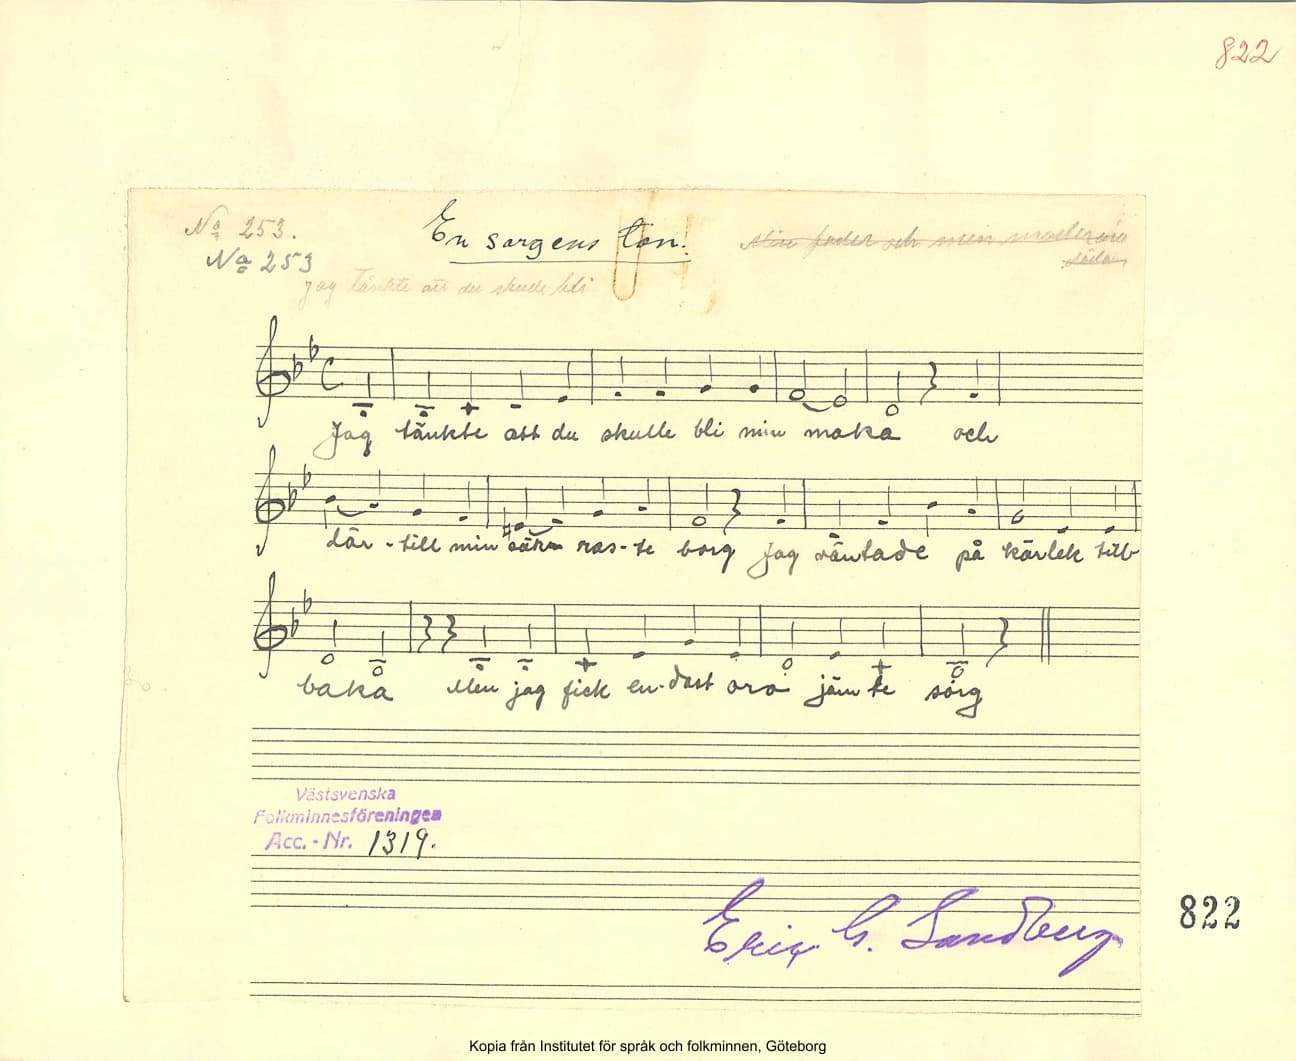 822
No 253.
No 253
En sorgens ton.
Min fader och min moder äro
döda
Jag tänkte att du skulle bli
Jag tänkte att du skulle bli min maka och
där-till min säkra ras-te borg Jag väntade på kärlek till-
baka Men jag fick en-dast oro jämte sorg
Västsvenska
Folkminnesföreningen
Acc.-Nr. 1319.
Erik G. Sandberg
822
Kopia från Institutet för språk och folkminnen, Göteborg